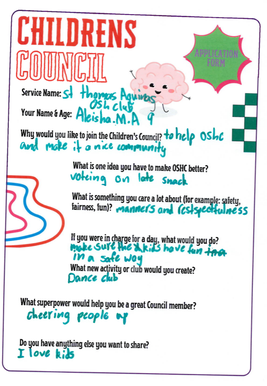 CHILDRENS
COUNCIL
APPLICATION
FORM
Service Name: st thomas Aquinas
Oshclub
Your Name & Age: Aleisha.M.A 9
Why would you like to join the Children's Council? to help oshc
and make it a nice community
What is one idea you have to make OSHC better?
voteing on late snack
What is something you care a lot about (for example: safety,
fairness, fun)? manners and restspectfulness
If you were in charge for a day, what would you do?
make sure the kids have fun
in a safe way
What new activity or club would you create?
Dance club
What superpower would help you be a great Council member?
cheering people up
Do you have anything else you want to share?
I love kids